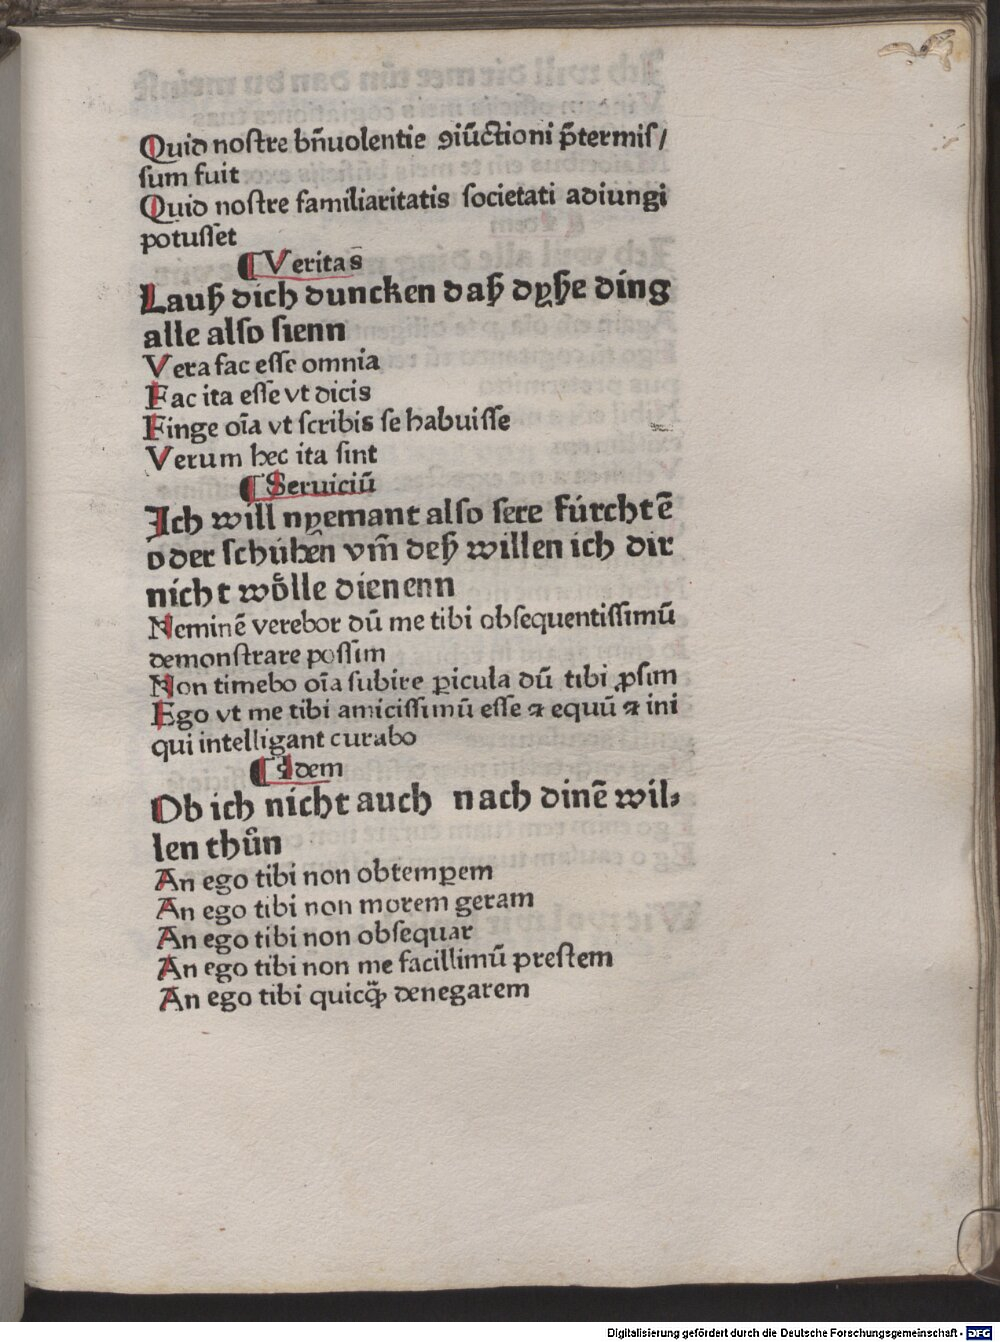 Quid nostre bn̄uolentie ꝯiūctioni p̄termis/
sum fuit
Quid nostre familiaritatis societati adiungi
potusset
¶ Veritas
Lauß dich duncken daß dyße ding
alle also sienn
Vera fac esse omnia
Fac ita esse vt dicis
Finge oīa vt scribis se habuisse
Verum hec ita sint
¶ Seruiciū
Ich will nyemant also sere fúrchtē
oder schúhen̄ vm̄ deß willen ich dir
nicht woͤlle dienenn
Neminē verebor dū me tibi obsequentissimū
demonstrare possim
Non timebo oīa subire ꝑicula dū tibi ꝓsim
Ego vt me tibi amicissimū esse ⁊ equū ⁊ ini
qui intelligant curabo
¶ Idem
Ob ich nicht auch nach dinē wil⸗
len thůn
An ego tibi non obtemꝑem
An ego tibi non morem geram
An ego tibi non obsequar
An ego tibi non me facillimū prestem
An ego tibi quicq̄ꝫ denegarem
Digitalisierung gefördert durch die Deutsche Forschungsgemeinschaft - DFG